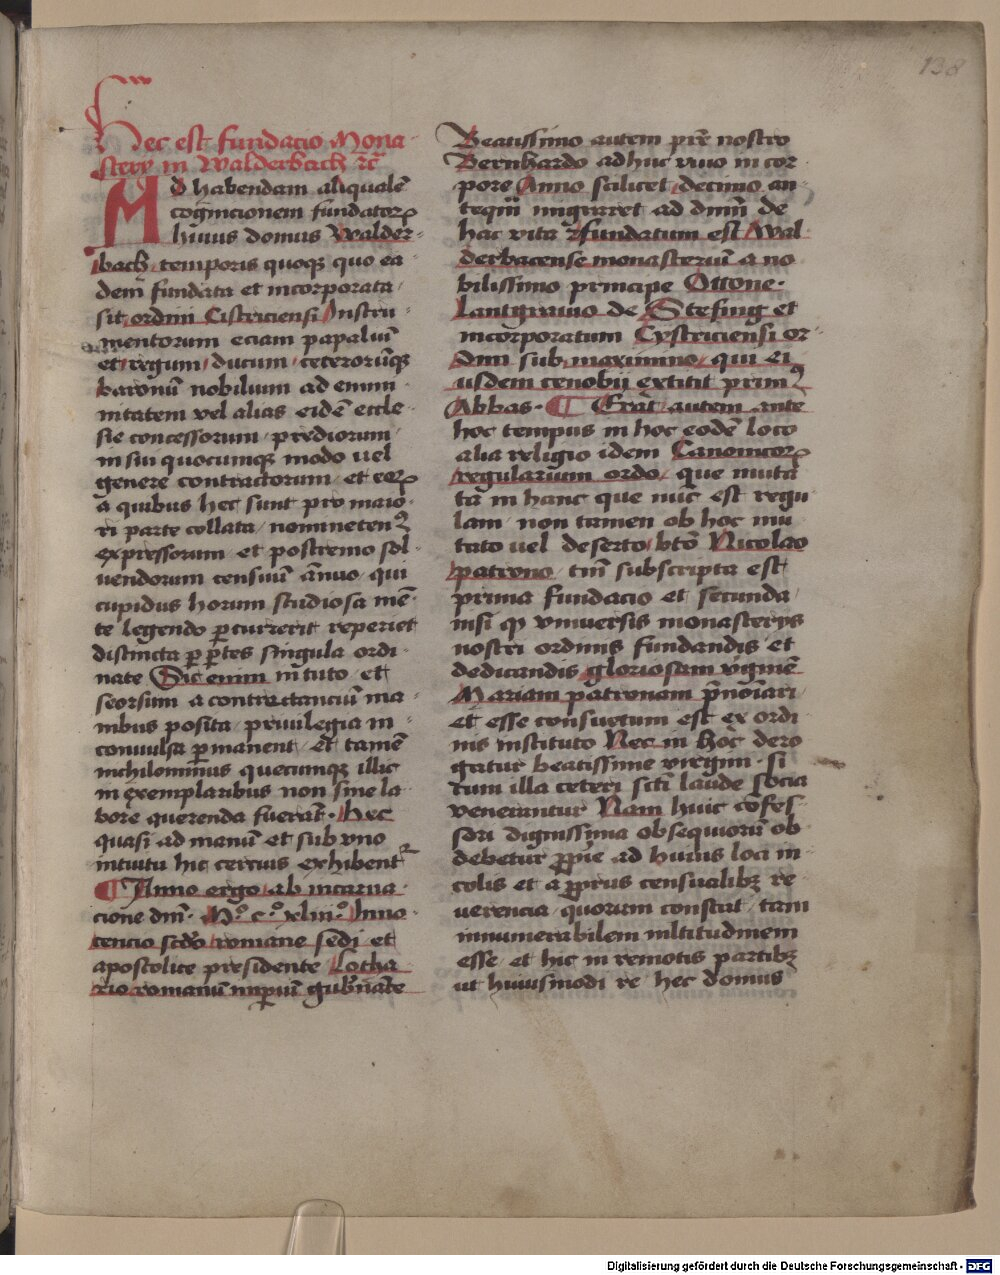 138
Hec est fundacio Mona
stery in Walderbach rc̄
AD habendam aliqualē
cognicionem fundatorꝝ
huius domus Walder-
bach, temporis quoqꝫ quo ea
dem fundata et incorporata
sit ordini Cisterciensi Instru-
mentorum eciam papaliū
et regum, ducum, ceterorūqꝫ
baronū nobilium ad emuni-
nitatem vel alias eidē eccle-
sie concessorum, prediorum
in sui quocumqꝫ modo vel
genere contractorum, et eorꝝ
a quibus hec sunt pro maio-
ri parte collata, nomineten
expressorum, et postremo sol-
vendorum censuū ānuo, qui
cupidus horum studiosa mē-
te legendo ꝑcurrerit reperiet
distincta ꝑ ꝑtes singula ordi-
nate Sic enim in tuto et
seorsum a contractanciū ma-
nibus posita, priuilegia in-
conuulsa ꝑmanent, et tamē
nichilominus quecumqꝫ illic
in exemplaribus non sine la-
bore querenda fuerāt. Hec
quasi ad manū et sub vno
intuitu hic cercius exhibent
¶ Anno ergo, ab incarna-
cione dnī. M.º c.º xliii.º Inno-
cencio scdo romane sedi et
apostolice presidente Lotha
rio romanū imꝑiū gubnāte
Beatissimo autem pr̄e nostro
Bernhardo adhuc viuo in cor-
pore Anno scilicet, decimo an-
teqm̄ migraret ad dnm̄ de
hac vita fundatum est Wal
derbacense monasteriū a no
bilissimo principe Ottone
Lantgrauio de Stefing et
incorporatum Cysterciensi or-
dini sub maximino, qui ei
usdem cenobii extitit prim9
Abbas. ¶ Erat autem ante
hoc tempus in hoc eodē loco
alia religio idem Canonicorꝝ
regularium ordo, que muta
ta in hanc que nūc est regu-
lam, non tamen ob hoc mu
tato vel deserto, bto Nicolao
patrono, tm̄ subscripta est
prima fundacio et secunda,
nisi qꝫ vniuersis monasterijs
nostri ordinis fundandis et
dedicandis gloriosam v̄ginē
Mariam patronam p̄noīari
et esse consuetum est ex ordi
nis instituto Nec in hoc dero
gatur beatissime virgini, si
cum illa ceteri scti laude socia
venerantur Nam huic cōfes-
sori dignissima obsequiorū ob
debetur ꝓpie ad huius loci in-
colis et a ꝓprus censualibꝫ re-
uerencia, quorum constat tam
innumerabilem mltitudinem
esse, et hic in remotis partibꝫ
ut huiusmodi re hec domus
Digitalisierung gefördert durch die Deutsche Forschungsgemeinschaft - DFG